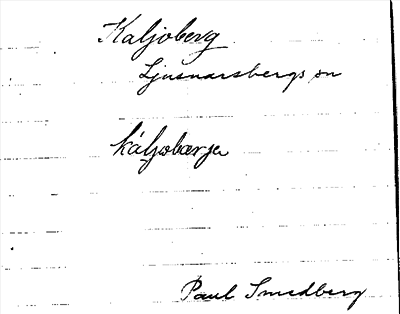 Kaljoberg
Ljusnarsbergs sn
Paul Smedberg